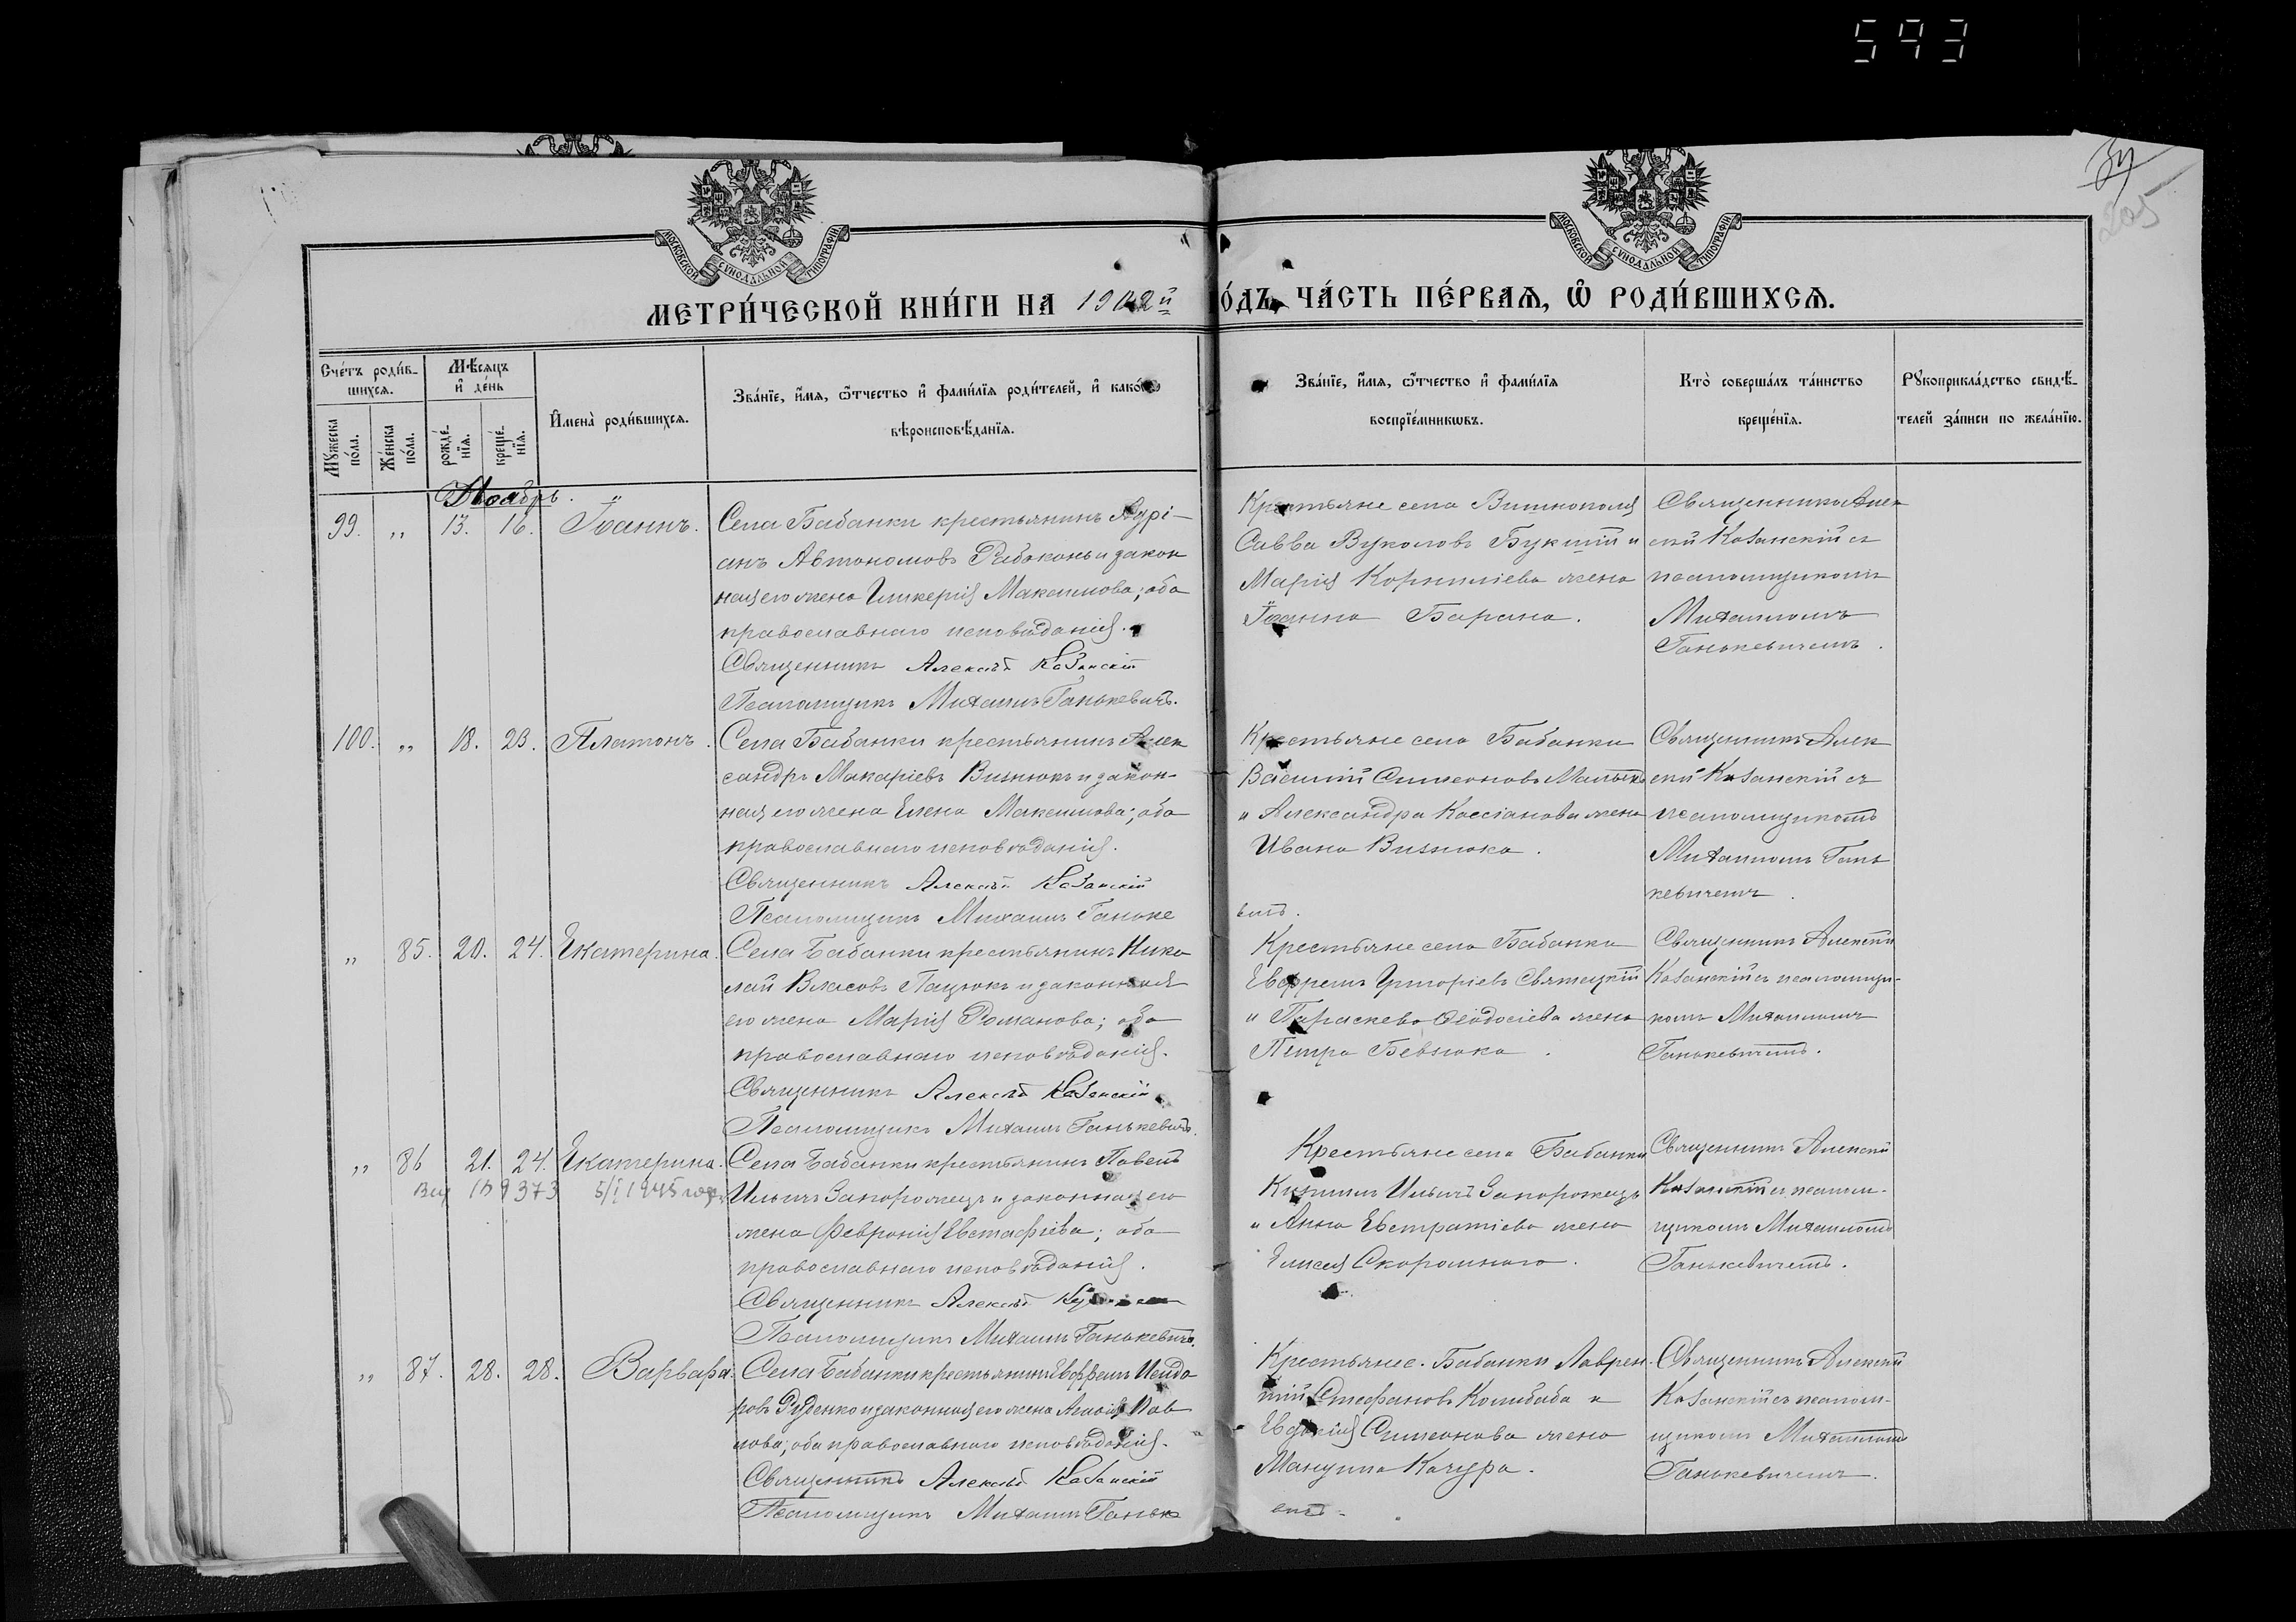 593
34
205
МОСКОВСКОЙ СѴНОДАЛЬНОЙ ТИПОГРАФІИ
МОСКОВСКОЙ СѴНОДАЛЬНОЙ ТИПОГРАФІИ
МЕТРИ́ЧЕСКОЙ КНИ́ГИ НА 1902й
О́ДЪ, ЧА́СТЬ ПЕ́РВАЯ, Ѡ҆ РОДИ́ВШИХСЯ.
Сче́тъ роди́в-
шихся.
Мꙋ́жеска по́ла.
Же́нска по́ла.
Мѣ́сяцъ и҆ де́нь
рожде́-нїя.
креще́-нїя.
И҆мена̀ роди́вшихся.
Зва́нїе, и҆́мя, ѻ҆́тчество и҆ фами́лїя роди́телей, и҆ како́гѡ
вѣроисповѣ́данїя.
Зва́нїе, и҆́мя, ѻ҆́тчество и҆ фами́лїя
воспрїе́мникѡвъ.
Кто̀ соверша́лъ та́инство
креще́нїя.
Рꙋкоприкла́дство свидѣ́-
телей за́писи по жела́нїю.
Ноябрь.
99. „ 13. 16. Іоаннъ.
Села Бабанки крестьянинъ Адрі-
анъ Автономовъ Рябоконь и закон
ная его жена Гликерія Максимова; оба
православнаго исповѣданія.
Священникъ Алексѣй Казанскій
Псаломщикъ Михаилъ Ганькевичъ.
Крестьяне села Вишнополя
Савва Вуколовъ Букшій и
Марія Корниліева жена
Іоанна Барана.
Священникъ Алек
сѣй Казанскій съ
псаломщикомъ
Михаиломъ
Ганькевичемъ.
100. „ 18. 23. Платонъ.
Села Бабанки крестьянинъ Алек
сандръ Макаріевъ Визнюкъ и закон-
ная его жена Елена Максимова; оба
православнаго исповѣданія.
Священникъ Алексѣй Казанскій
Псаломщикъ Михаилъ Ганьке
вичъ.
Крестьяне села Бабанки
Василій Симеоновъ
и Александра Кассіанова жена
Ивана Визнюка.
Священникъ Алек
сѣй Казанскій съ
псаломщикомъ
Михаиломъ Гань
кевичемъ.
„ 85. 20. 24. Екатерина.
Села Бабанки крестьянинъ Нико
лай Власовъ Пацюкъ и законная
его жена Марія Романова; оба
православнаго исповѣданія.
Священникъ Алексѣй Казанскій
Псаломщикъ Михаилъ Ганькевичъ.
Крестьяне села Бабанки
Евфремъ Григоріевъ Святецкій
и Параскева Ѳеодосіева жена
Петра Бевзюка.
Священникъ Алексѣй
Казанскій съ псаломщи-
комъ Михаиломъ
Ганькевичемъ.
„ 86 21. 24. Екатерина.
373 5/I 1945 год
Села Бабанки крестьянинъ Павелъ
Ильичъ Запорожецъ и законная его
жена Февронія Евстафіева; оба
православнаго исповѣданія.
Священникъ Алексѣй
Псаломщикъ Михаилъ Ганькевичъ.
Крестьяне села Бабанки
Кириллъ Ильичъ Запорожецъ
и Анна Евстратіева жена
Елисея Скоромнаго.
Священникъ Алексѣй
Казанскій съ псалом-
щикомъ Михаиломъ
Ганькевичемъ.
„ 87. 28. 28. Варвара.
Села Бабанки крестьянинъ Евфремъ Исидо
ровъ Руденко и законная его жена Пав
лова; оба православнаго исповѣданія.
Священникъ Алексѣй Казанскій
Псаломщикъ Михаилъ Ганьке
вичъ.
Крестьяне с. Бабанки Лаврен
тій Стефановъ Колибаба и
Евдокія Симеонова жена
Мануила Качура.
Священникъ Алексѣй
Казанскій съ псалом-
щикомъ Михаиломъ
Ганькевичемъ.